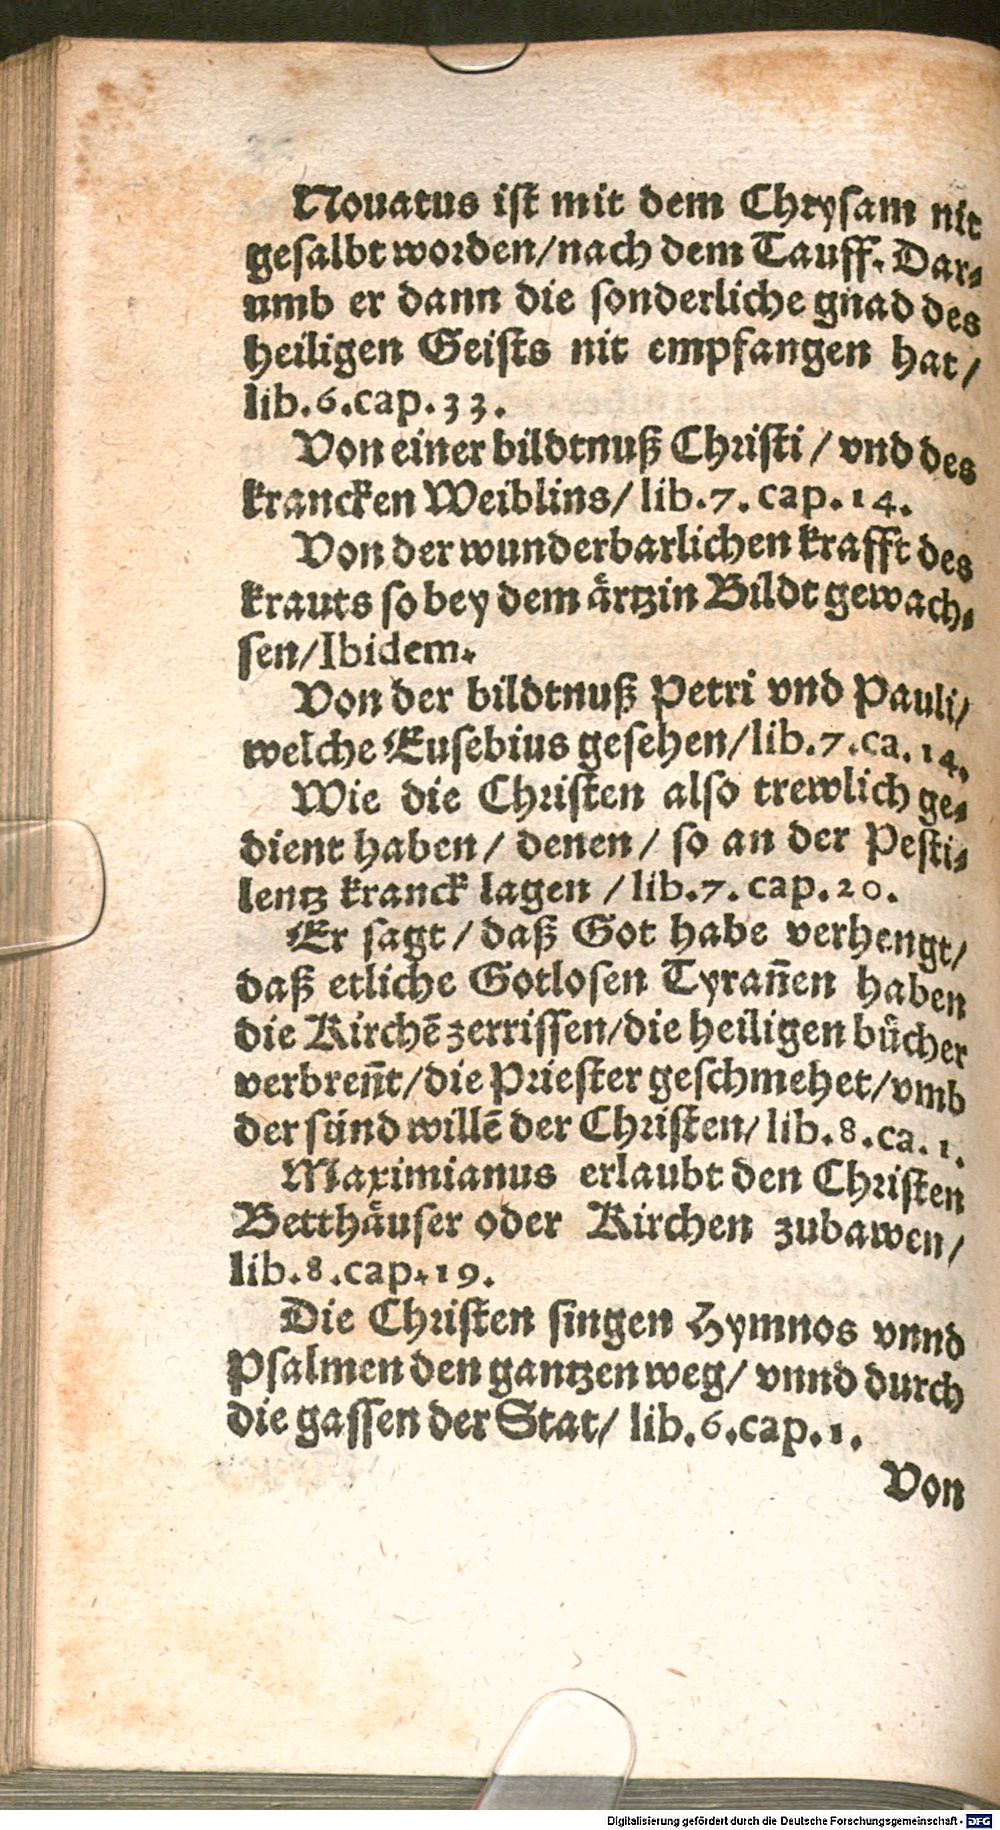 Nouatus ist mit dem Chrysam nit
gesalbt worden/nach dem Tauff. Dar⸗
umb er dann die sonderliche gnad des
heiligen Geists nit empfangen hat/
lib.6.cap.33.
Von einer bildtnuß Christi / vnd des
krancken Weiblins/ lib.7. cap.14.
Von der wunderbarlichen krafft des
krauts so bey dem ärtzin Bildt gewach⸗
sen/Ibidem.
Von der bildtnuß Petri vnd Pauli/
welche Eusebius gesehen/lib.7.ca.14.
Wie die Christen also trewlich ge⸗
dient haben/ denen/ so an der Pesti⸗
lentz kranck lagen /lib.7. cap.20.
Er sagt/ daß Got habe verhengt/
daß etliche Gotlosen Tyrañen haben
die Kirchē zerrissen/die heiligen bücher
verbreñt/die Priester geschmehet/vmb
der sünd willē der Christen/ lib.8.ca.1.
Maximianus erlaubt den Christen
Betthäuser oder Kirchen zubawen/
lib.8.cap.19.
Die Christen singen Hymnos vnnd
Psalmen den gantzen weg/ vnnd durch
die gassen der Stat/ lib.6.cap.1.
Von
Digitalisierung gefördert durch die Deutsche Forschungsgemeinschaft - DFG